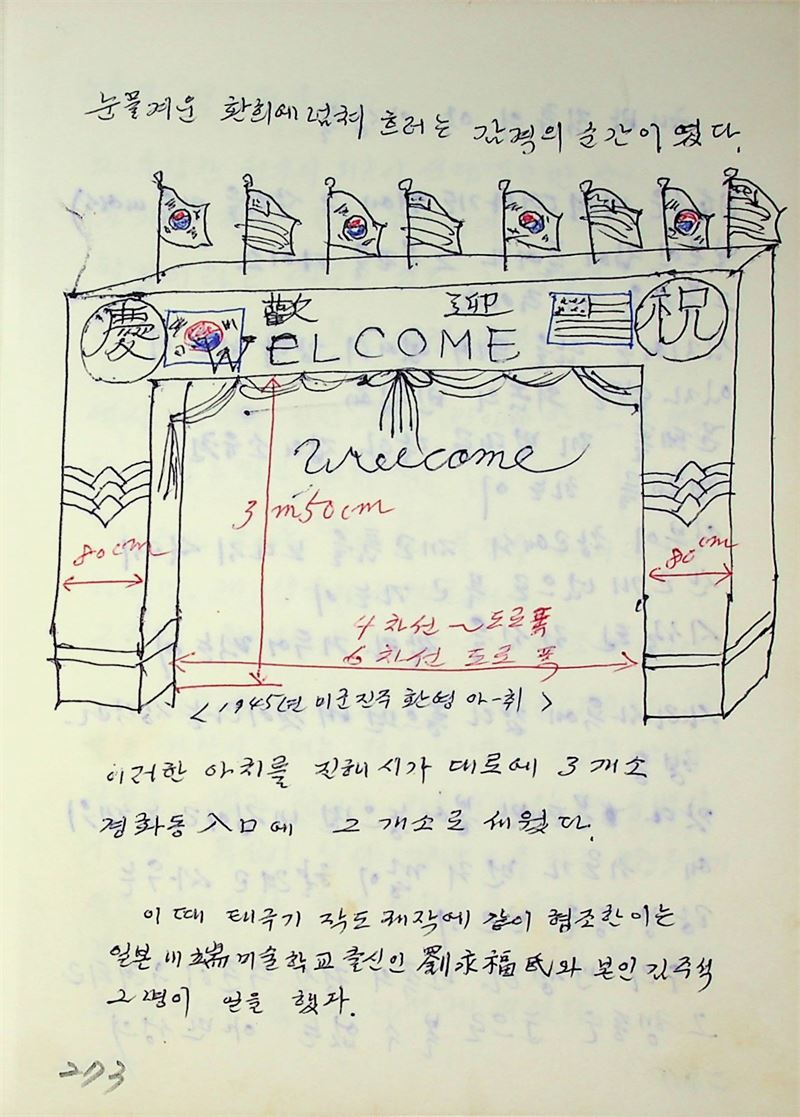 눈물겨운 환희에 넘쳐 흐르는 감격의 순간이였다.
慶 歡 迎 祝
WELCOME
Welcome
3m50cm
80cm 80cm
4차선 ~ 도로폭
6차선 도로 폭
< 1945년 미군진주 환영 아-취 >
이러한 아치를 진해시가 대로에 3개소
경화동 入口에 2개소로 세웠다.
이때 태극기 작도 제작에 같이 협조한 이는
일본 미술학교 출신인 劉永福氏와 본인 김주석
2명이 일을 했다.
273